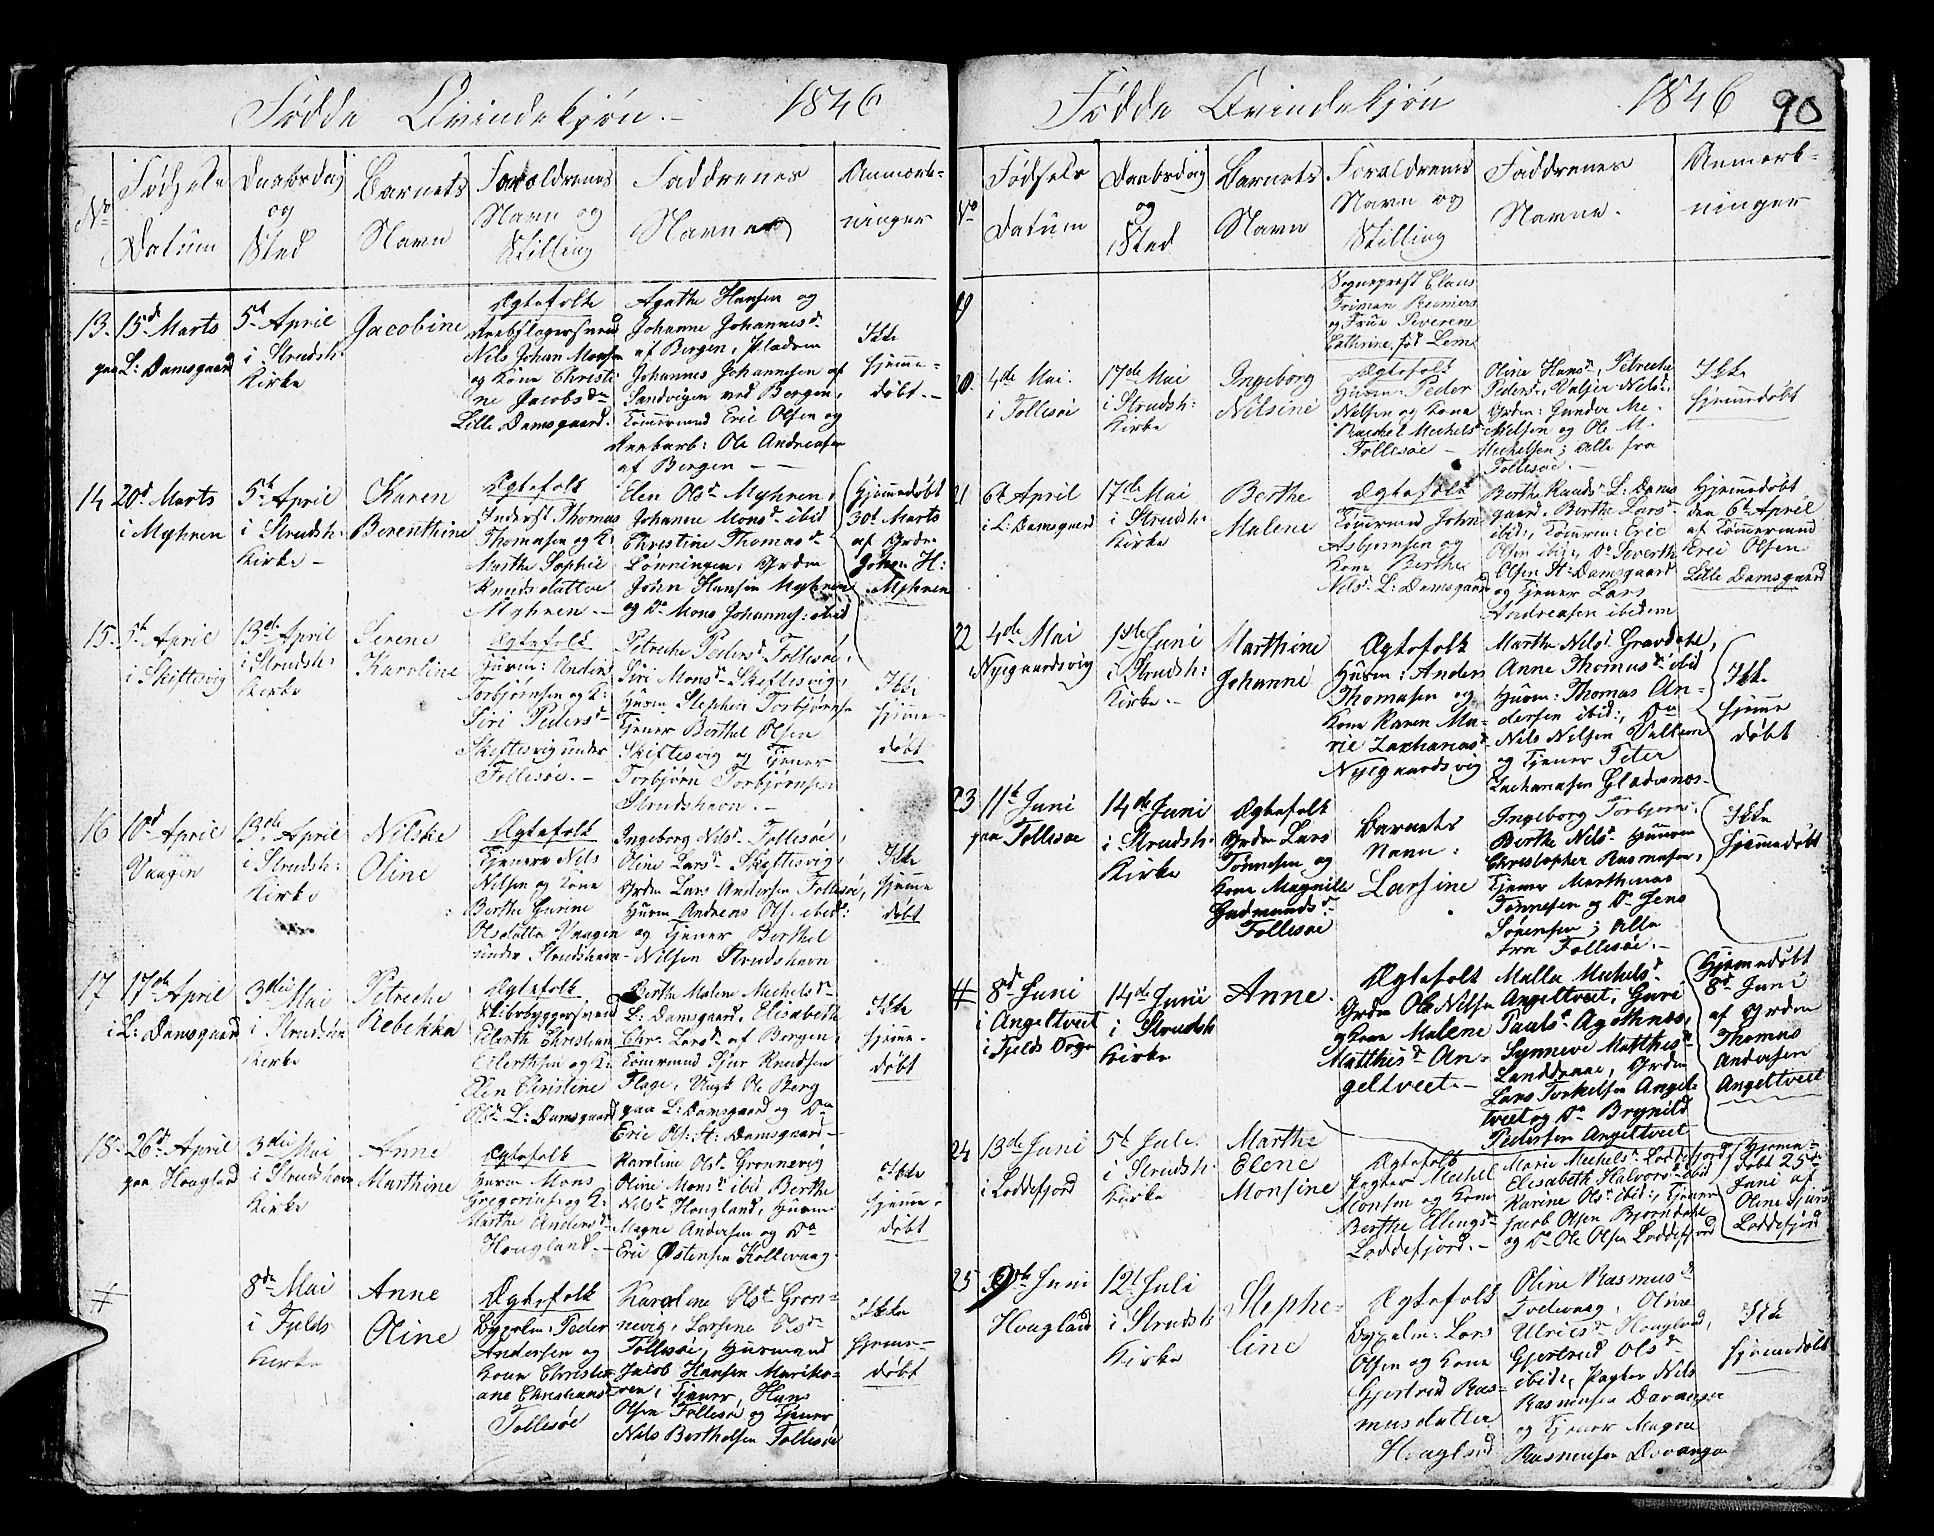 Fødde Qvindekjøn.- 1846
No
Fødsels
Datum
Daabsdag
og
Sted
Barnets
Navn
Foraldrenes
Navn og
Stilling
Faddrenes
Navne
Anmærk-
ninger
13.
15d Marts
paa L: Damsgaard
5t April
i Strudsh:
Kirke
Jacobine
Ægtefolk
Nils Johan Monsen
og Kone Christi
ne Jacobsd
Lille Damsgaard.
Agathe Hansen og
Johanne Johannesd
af Bergen,
Johannes Johannesen af
Sandvigen ved Bergen,
Tømermand Eric Olsen og
Ole Andreasen
af Bergen - -
Ikke
hjemme-
døbt.-
14
20d Marts
i Myhren
5t April
i Strudsh:
Kirke -
Karen
Berenthine
Ægtefolk
Inderst Thomas
Thomasen og K:
Marthe Sophie
Knudsdatter
Myhren.-
Elen Olsd Myhren,
Johanne Monsd ibid
Christine Thomasd
Lønningen, Grdm
John Hansen Myhren
og Do Mons Johannes: ibid
Hjemedøbt
30t Marts
af Grdm
Johan H:
Myhren
15.
5t April
i Skiftesvig
13de April
i Strudsh:
Kirke
Serene
Karoline
Ægtefolk
Huusm: Anders
Torbjørnsen og K:
Siri Pedersd
Skiftesvig under
Follesøe.-
Petreche Pedersd Follesøe,
Siri Monsd Skiftesvig,
Huusm Stephen Torbjørnsen
Tjener Berthel Olsen
Skiftesvig og Tjener
Torbjørn Torbjørnsen
Strudshavn.-
Ikke
hjemme-
døbt
16
10d April
Vaagen
13de April
i Strudsh:
Kirke
Nilske
Oline
Ægtefolk
Tjener Nils
Nilsen og Kone
Berthe Gurine
Olsdatter Vaagen
under Strudshavn
Ingeborg Nilsd Follesøe,
Oline Larsd Skiftesvig,
Grdm Lars Andersen Follesøe,
Huusm Andreas Ols: ibid:
og Tjener Berthel
Nilsen Strudshavn
Ikke
hjemme
døbt
17
17de April
i L: Damsgaard
3die Mai
i Strudshn
Kirke
Petreche
Rebekka
Ægtefolk
Skibsbyggersvend
Eilerth Christian
Eilerthsen og K:
Elen Christine
Olsd L: Damsgaard
Berthe Malene Mechelsd
L: Damsgaard, Elisabeth
Chr: Larsd af Bergen,
Tømermand Sjur Knudsen
Flage, Ungk: Ole Berg
paa L: Damsgaard og Do
Eric Ols: St: Damsgaard-
Ikke
hjemme-
døbt
18.
26d April
paa Hougland
3die Mai
i Strudshavn
Kirke
Anne
Marthine
Ægtefolk
Huusm Mons
Gregorius: og K:
Marthe Andersd
Hougland.-
Karoline Olsd Grønnevig
Oline Monsd ibid Berthe
Nilsd Hougland, Huusm
Magne Andersen og Do
Eric Østensen Kollevaag.
Ikke
hjemme-
døbt
#
8de Mai
i Fjelds
Kirke
Anne
Oline
Ægtefolk
Bygselm: Peder
Andersen og
Kone Christi-
ane Christiansd
Follesøe
Karoline Olsd Grøn-
nevig, Larsine Olsd
Follesøe, Huusmand
Jacob Hansen Mariko-
ven, Tjener, Hans
Olsen Follesøe og Tjener
Nils Berthelsen Follesøe
Ikke
hjeme-
døbt
Fødde Qvindekjøn 1846 90
No
Fødsels
Datum
Daabsdag
og
Sted
Barnets
Navn
Foraldrenes
Navn og
Stilling
Faddrenes
Navne.
Anmærk-
ninger
19
Sogneprest Claus
Friman Reimers
og Frue Severene
Cathrine, fød Lem
20.
4de Mai.
i Follesøe
17de Mai
i Strudsh:
Kirke
Ingeborg
Nilsine
Ægtefolk
Huusm: Peder
Nilsen og Kone
Rachel Mechelsd
Follesøe -
Oline Hansd, Petreche
Pedersd, Valjer Nilsd,
Grdm: Gunder Me-
chelsen og Ole M.
Mechelsen; alle fra
Follesøe.-
Ikke
hjemmedøbt
21
6t April
i L: Damsgaard
17de Mai
i Strudsh:
Kirke
Berthe
Malene
Ægtefolk
Tømermand John
Asbjørnsen og
Kone Berthe
Nilsd L: Damsgaard
Berthe Knudsd L: Dams
gaard, Berthe Larsd
ibid:, Tømrem: Eric
Olsen ibid:, Do Siverth
Olsen St: Damsgaard
og Tjener Lars
Andreasen ibidem
Hjemedøbt
den 6t April
af Tømmermand
Eric Olsen
Lille Damsgaard
22
4de Mai
Nygaardsvig
1ste Juni
i Strudsh:
Kirke.-
Marthine
Johanne
Ægtefolk
Huusm: Anders
Thomasen og
Kone Karen Ma-
rie Zachariasd
Nygaardsvig
Marthe Nilsd Gravdale,
Anne Thomasd ibid
Huusm: Thomas An-
dersen ibid:, Do
Nils Nilsen
og Tjener Peter
Zachariasen Gladenæs.
Ikke
hjemme
døbt
23
11t Juni
paa Follesøe
14de Juni
i Strudsh:
Kirke
Ægtefolk
Grdm Lars
Tønnesen og
Kone Magnille
Gudmundsd
Follesøe
Barnets
Navn:
Larsine
Ingeborg Torbjørns:
Berthe Nilsd Huusm
Christopher Rasmusen,
Tjener Marthinus
Tønnesen og Do Jens
Sørensen; alle
fra Follesøe.-
Ikke
hjemmedøbt
#
8d Juni
i Angeltveit
i Fjelds Sogn
14de Juni
i Strudsh
Kirke
Anne.
Ægtefolk
Grdm Ole Nilsen
og Kone Malene
Matthisd An-
geltveet-
Malla Mechelsd
Angeltveit, Guri
Paulsd Agothnæs,
Synneve Matthisd
Landdraae, Grdm
Lars Torkelsen Angel-
tveet og Do Brynild
Pedersen Angeltveit
Hjemedøbt
8d Juni
af Grdm
Thomas
Andersen
Angeltveit
24
13de Juni
i Loddefjord
5t Juli
i Strudsh:
Kirke
Marthe
Elene
Monsine
Ægtefolk
Pagter Mechel
Monsen og Kone
Berthe Ellingsd
Loddefjord.-
Marie Mechelsd Loddefjord
Elisabeth Halvorsd ibid
Karine Olsd ibid:, Tjener
Jacob Olsen Bjørndale
og Do Ole Olsen Loddefjord
Hjemme-
døbt 25de
Juni af
Oline Sjursd
Loddefjord
25
9de Juni
Hougland
12t Juli
i Strudsh
Kirke
Stephe-
line
Ægtefolk
Bygselm: Lars
Olsen og Kone
Gjertrud Ras-
musdatter
Hougland
Oline Rasmusd
Tvedevaag, Oline
Ulricsd Hougland,
Gjertrud Olsd
ibid:, Pagter Nils
Rasmusen Davanger
og Tjener Magne
Rasmusen Davanger
Ikke
hjemedøbt